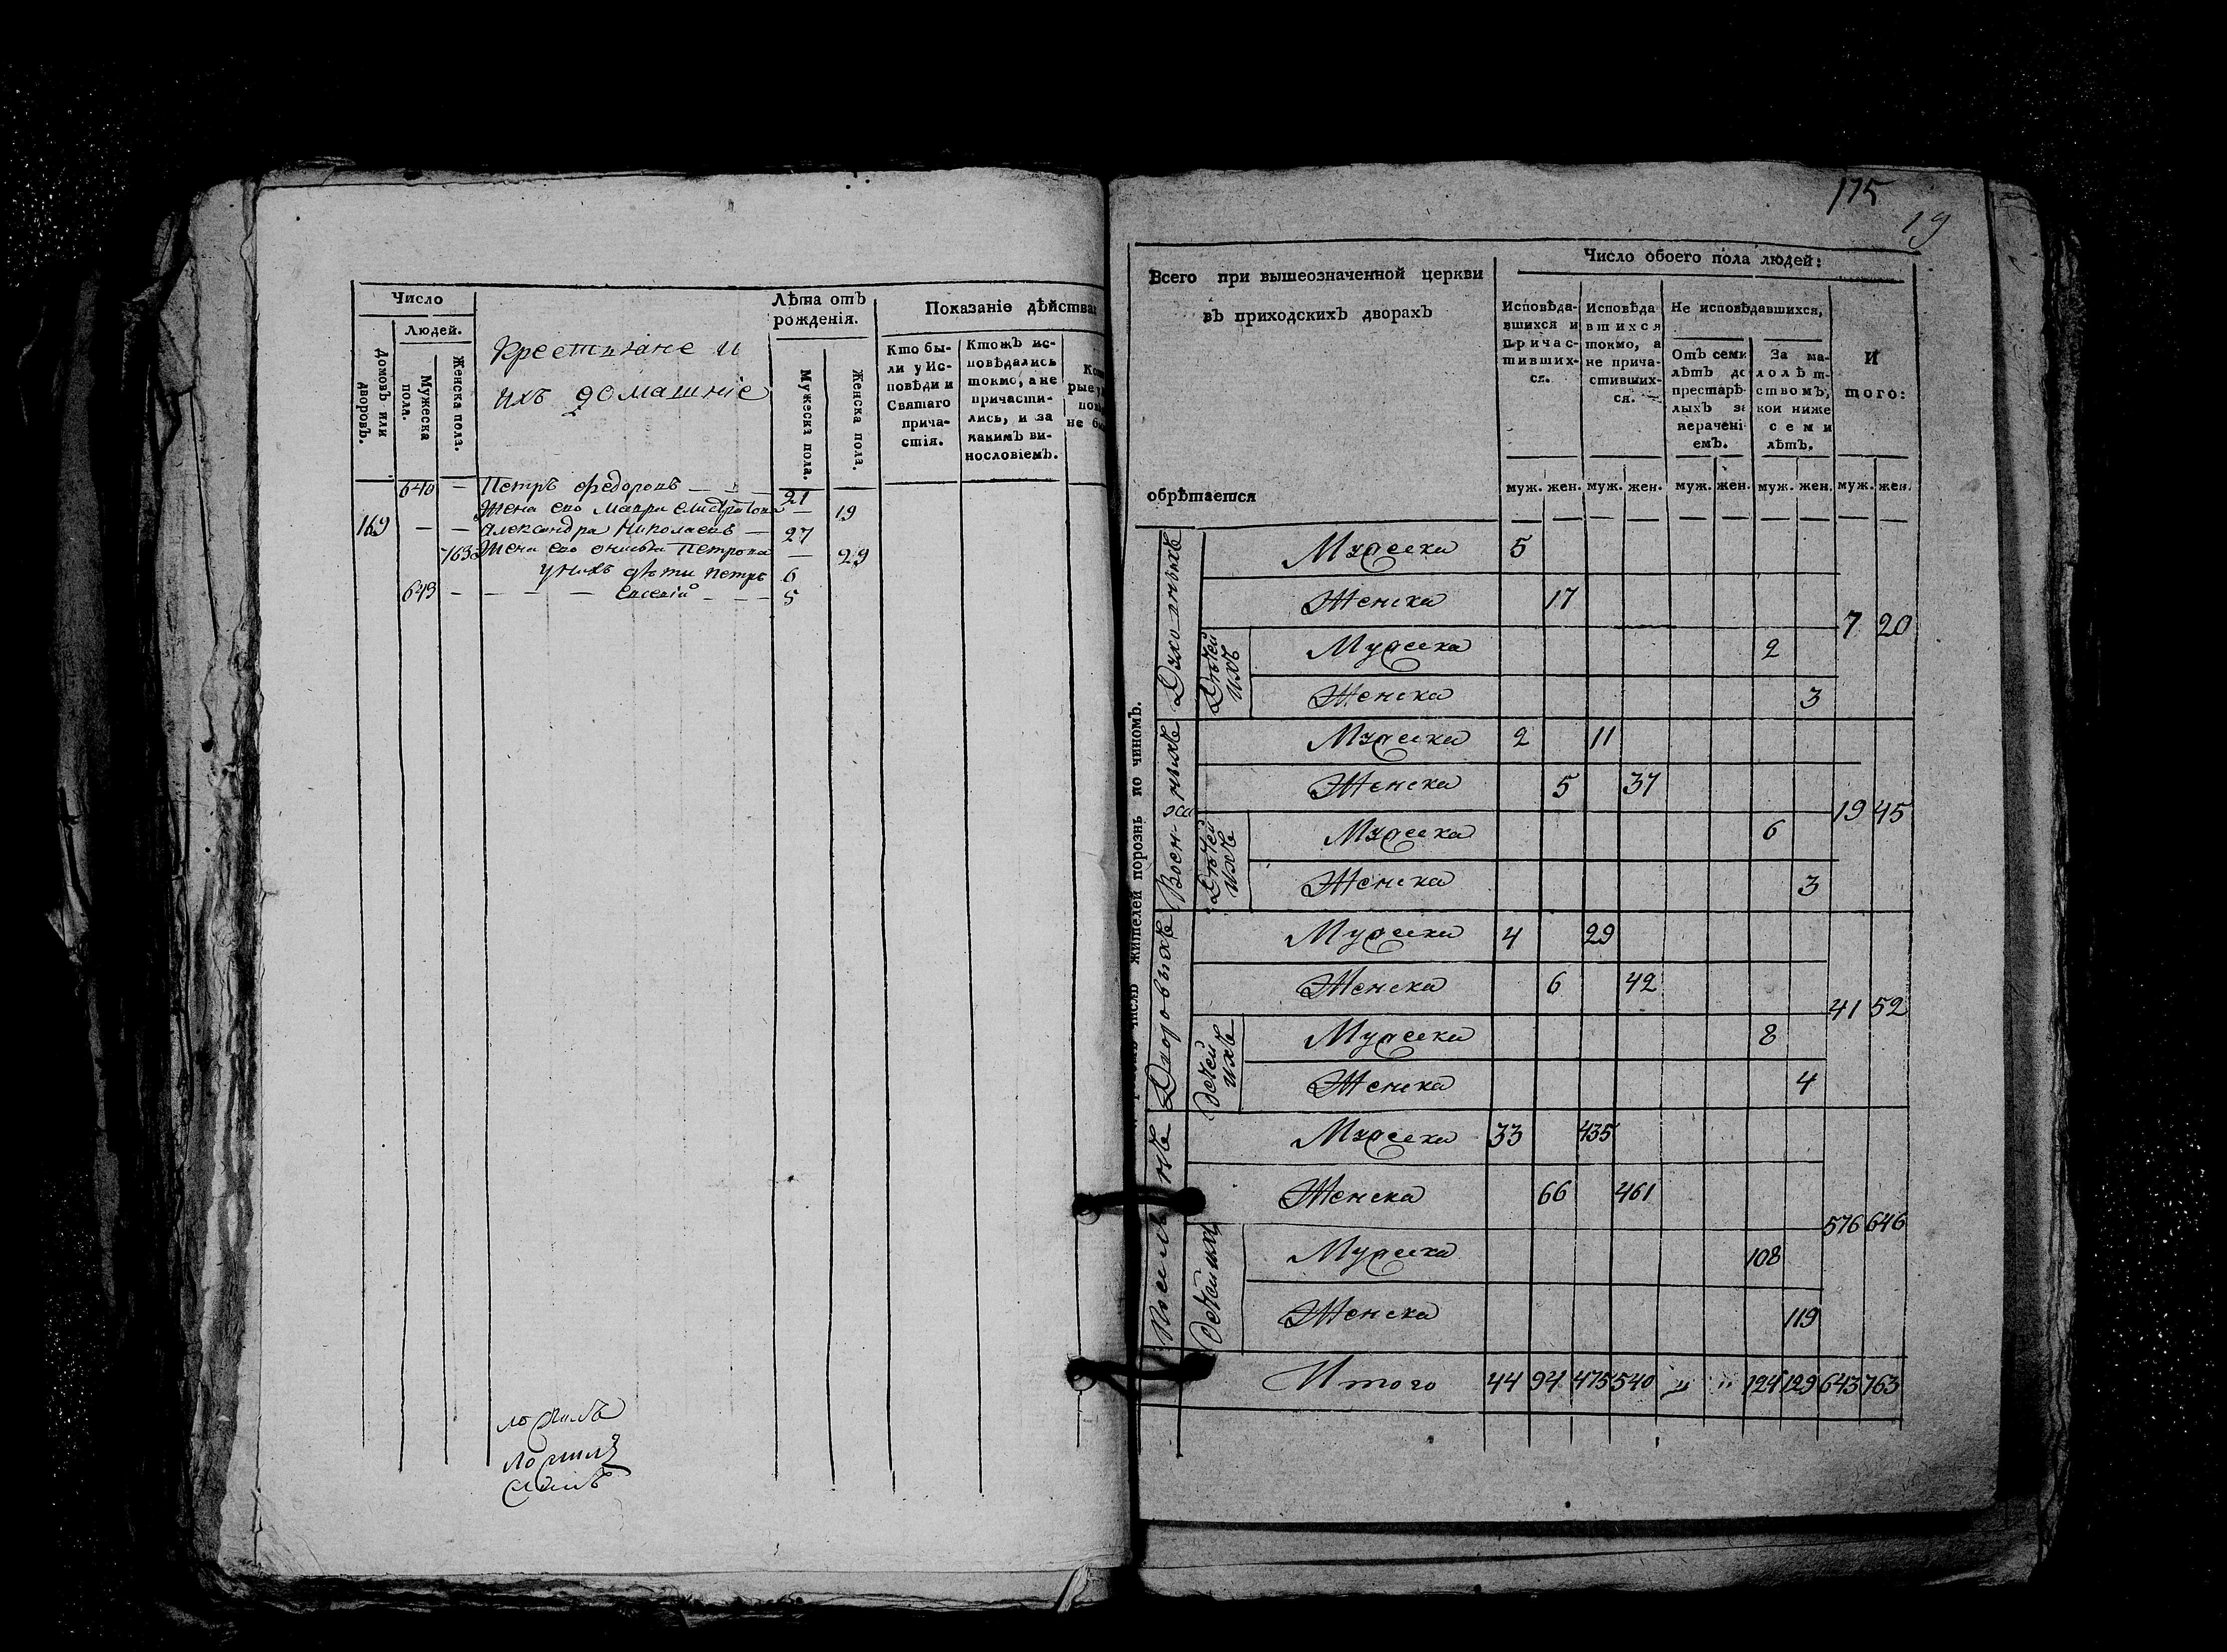 Число
Людей.
Домовъ или дворовъ.
Мужеска пола.
Женска пола.
Крестьяне и
ихъ домашніе
Лѣта отъ рожденія.
Мужеска пола.
Женска пола.
Показаніе дѣйства
Кто были у Исповѣди и Святаго причастія.
Ктожъ исповѣдались токмо, а не причастились, и за какимъ винословіемъ.
640 — Петръ Федоровъ — — — 21
Жена ево Мавра — 19
169 — — Александра Николаевъ — 27
763 Жена ево Петрова — 29
у нихъ дѣти Петръ 6
643 — — — — Евсевій — — — 5
175
19
Всего при вышеозначенной церкви
въ приходскихъ дворахъ
обрѣтается
Число обоего пола людей:
Исповѣдавшихся и причастившихся.
Исповѣдавшихся токмо, а не причастившихся.
Не исповѣдавшихся,
Отъ семи лѣтъ до престарѣлыхъ за нераченіемъ.
За малолѣтствомъ, кои ниже семи лѣтъ.
И того:
муж. жен. муж. жен. муж. жен. муж. жен. муж. жен.
жителей порознь по чиномъ.
Духовныхъ
Мужеска 5
Женска 17
7 20
Дѣтей ихъ
Мужеска 2
Женска 3
Военныхъ
Мужеска 2 11
Женска 5 37
19 45
Дѣтей ихъ
Мужеска 6
Женска 3
Дворовыхъ
Мужеска 4 29
Женска 6 42
41 52
Детей ихъ
Мужеска 8
Женска 4
Мужеска 33 435
Женска 66 461
576 646
Детей ихъ
Мужеска 108
Женска 119
Итого 44 94 475 540 " " 124 129 643 763